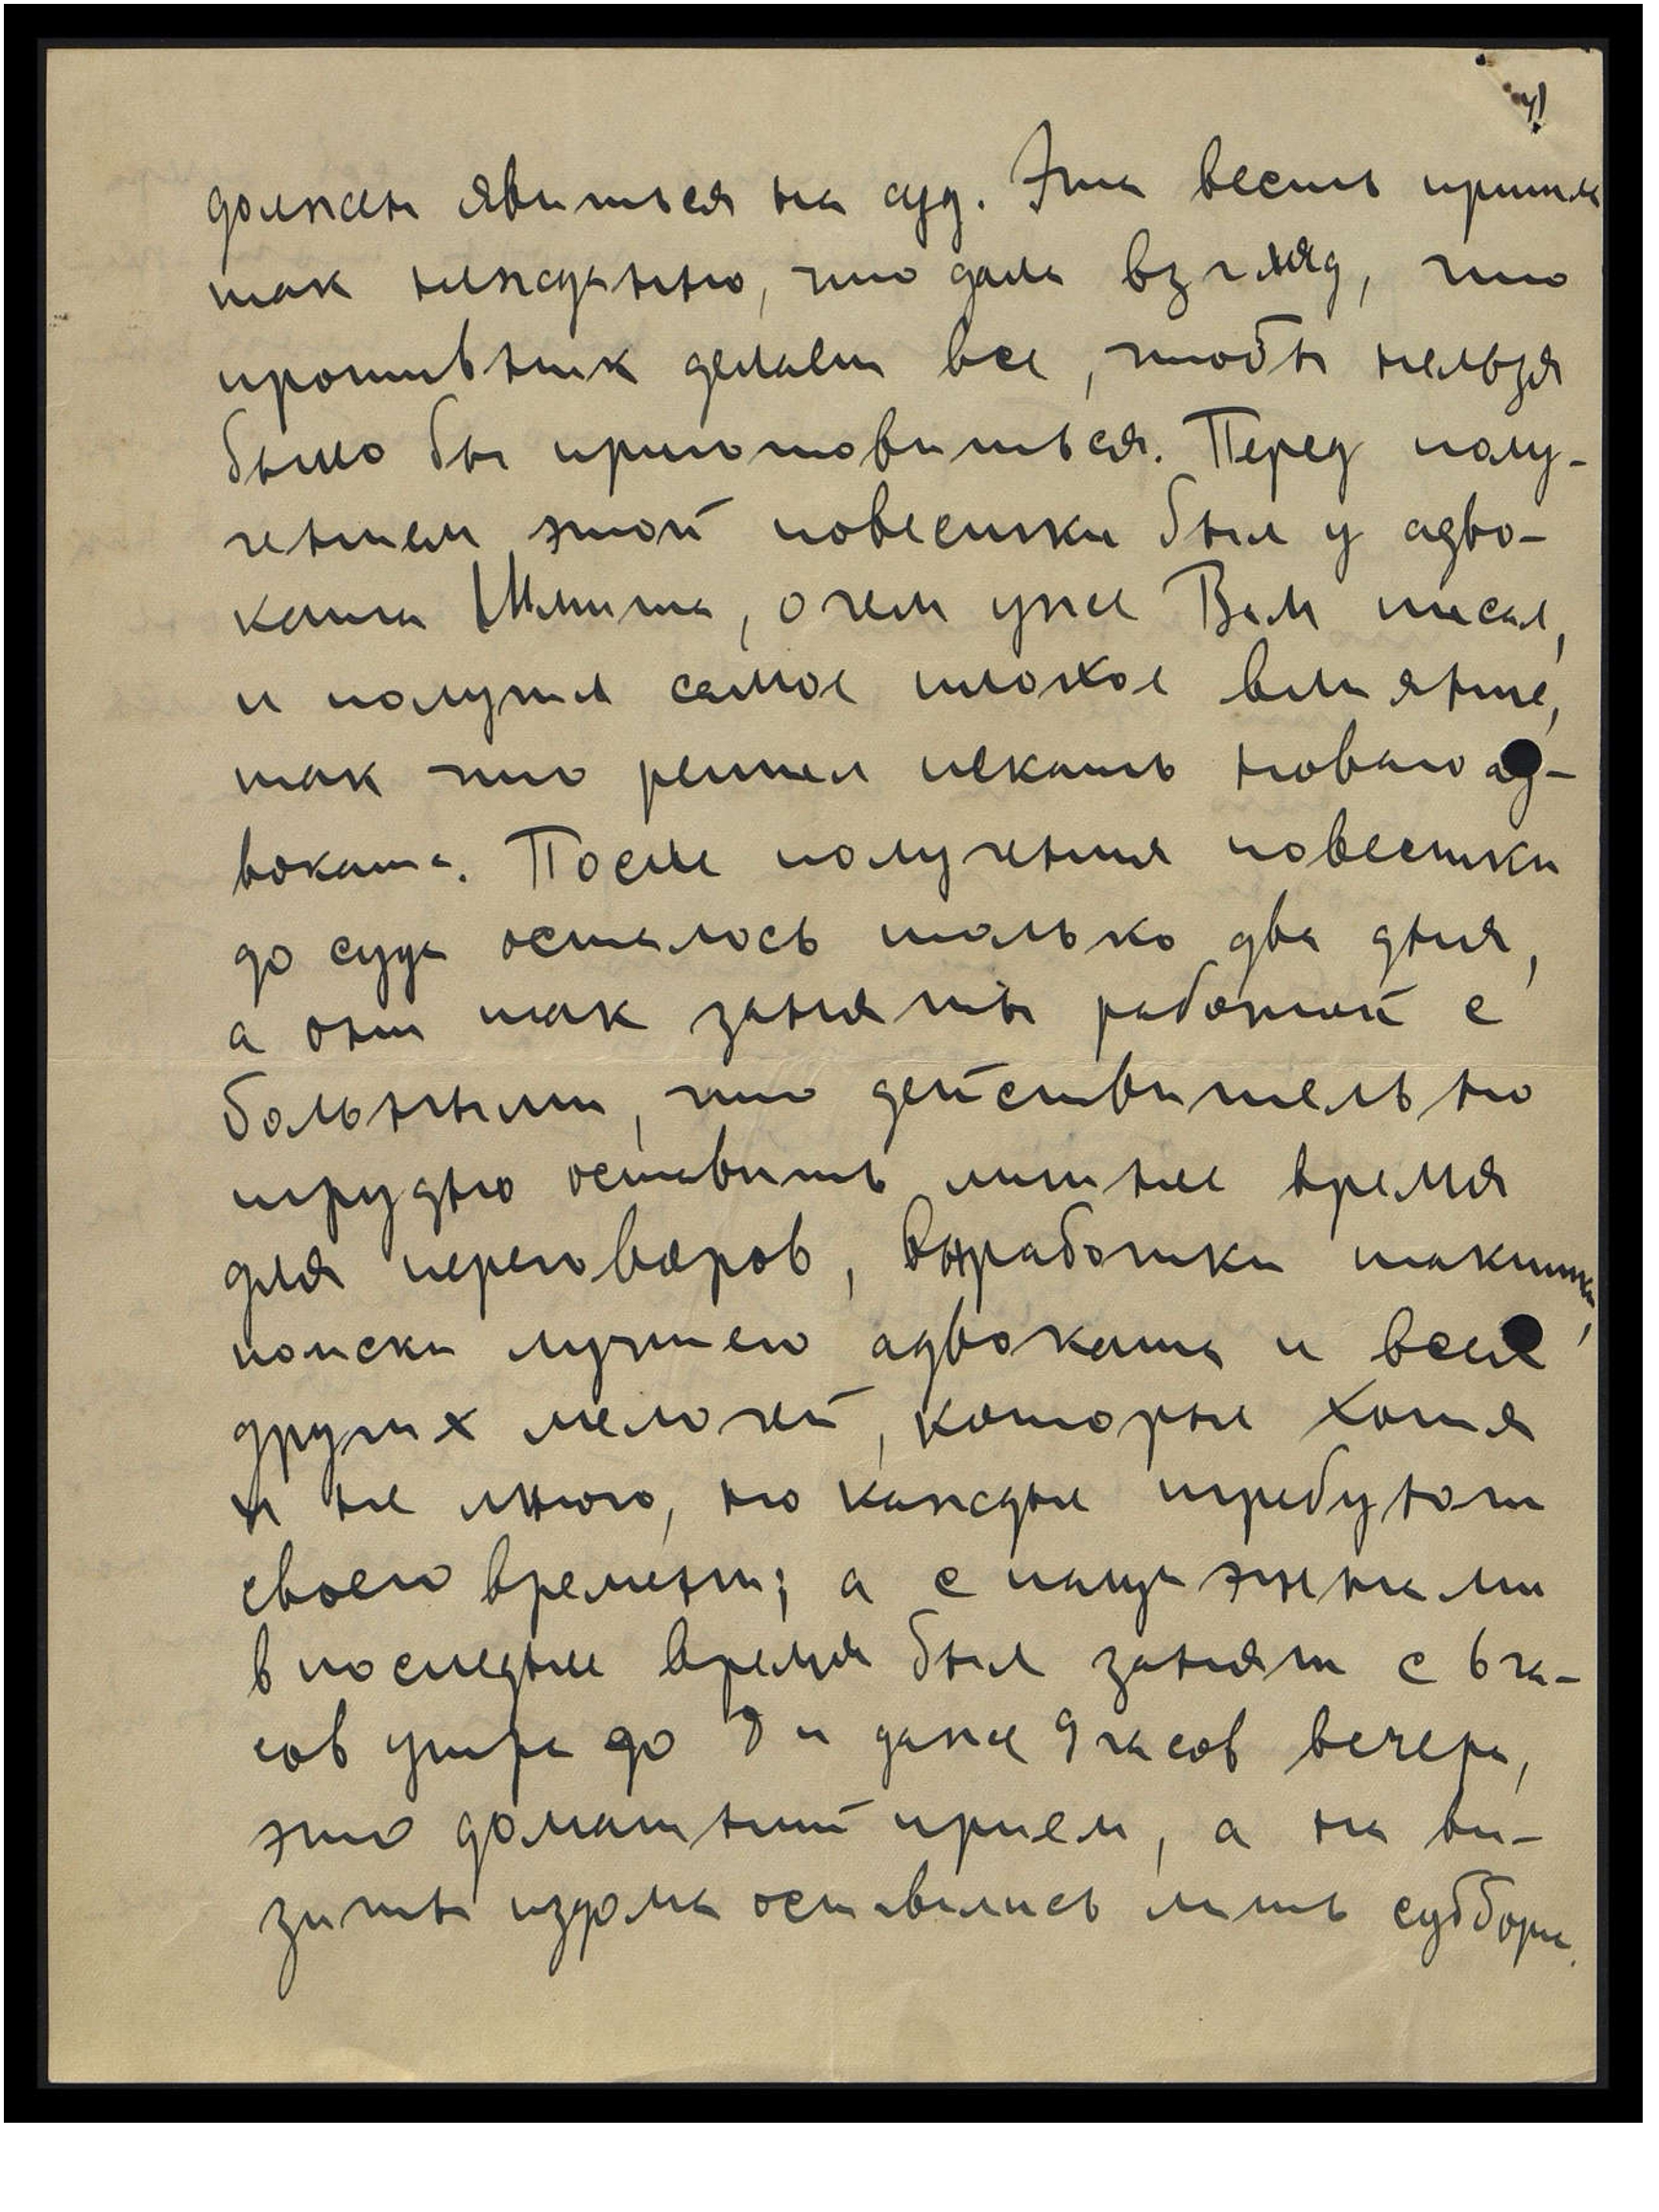 4)
должен явиться на суд. Эта весть пришла
так нежданно, что дала взгляд, что
противник делает все, чтобы нельзя
было бы приготовиться. Перед полу-
чением этой повестки был у адво-
ката Шмита, о чем уже Вам писал,
и получил самое плохое влияние,
так что решил искать новаго ад-
воката. После получения повестки
до суда осталось только два дня,
а они так заняты работой с
больными, что действительно
трудно оставить лишнее время
для переговоров, выработки тактики,
поиски лучшего адвоката и всех
других мелочей, которые хотя
и не много, но каждые требуют
своего времени; а с пациэнтами
в последнее время был занят с 6 ча-
сов утра до 8 и даже 9 часов вечера,
это домашний прием, а на ви-
зиты издома оставались лишь субботы.